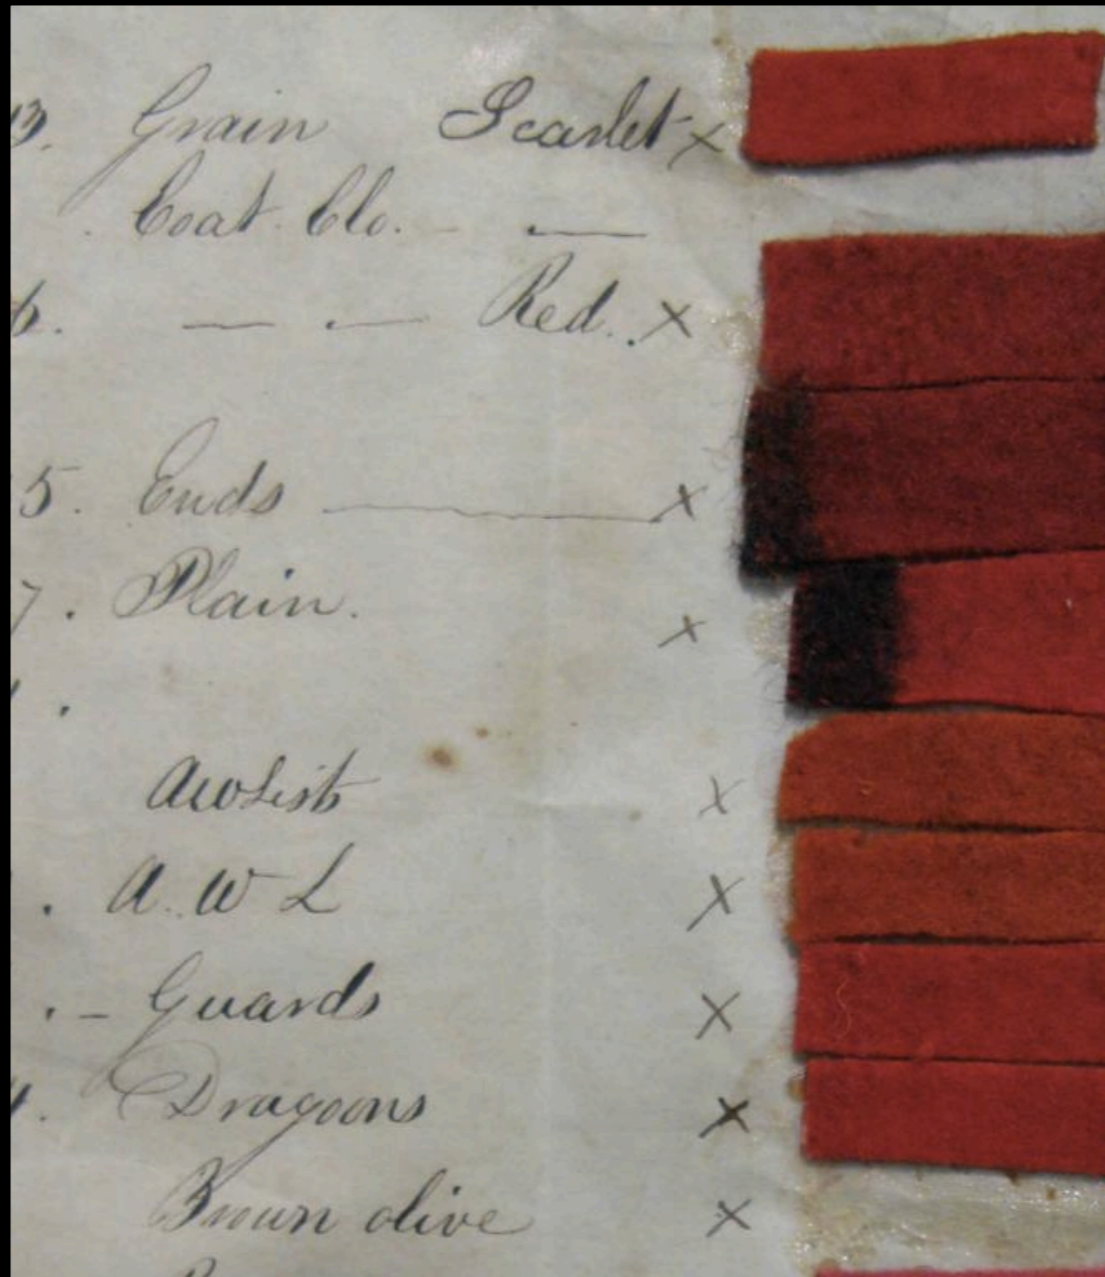 13. Grain Scarlet ×
. Coat Clo. - . —
6. — . — Red. . ×
5. Ends ——— ×
7. Plain. ×
.
AwLists ×
. A. W L ×
. - Guards ×
4. Dragoons ×
Brown olive ×